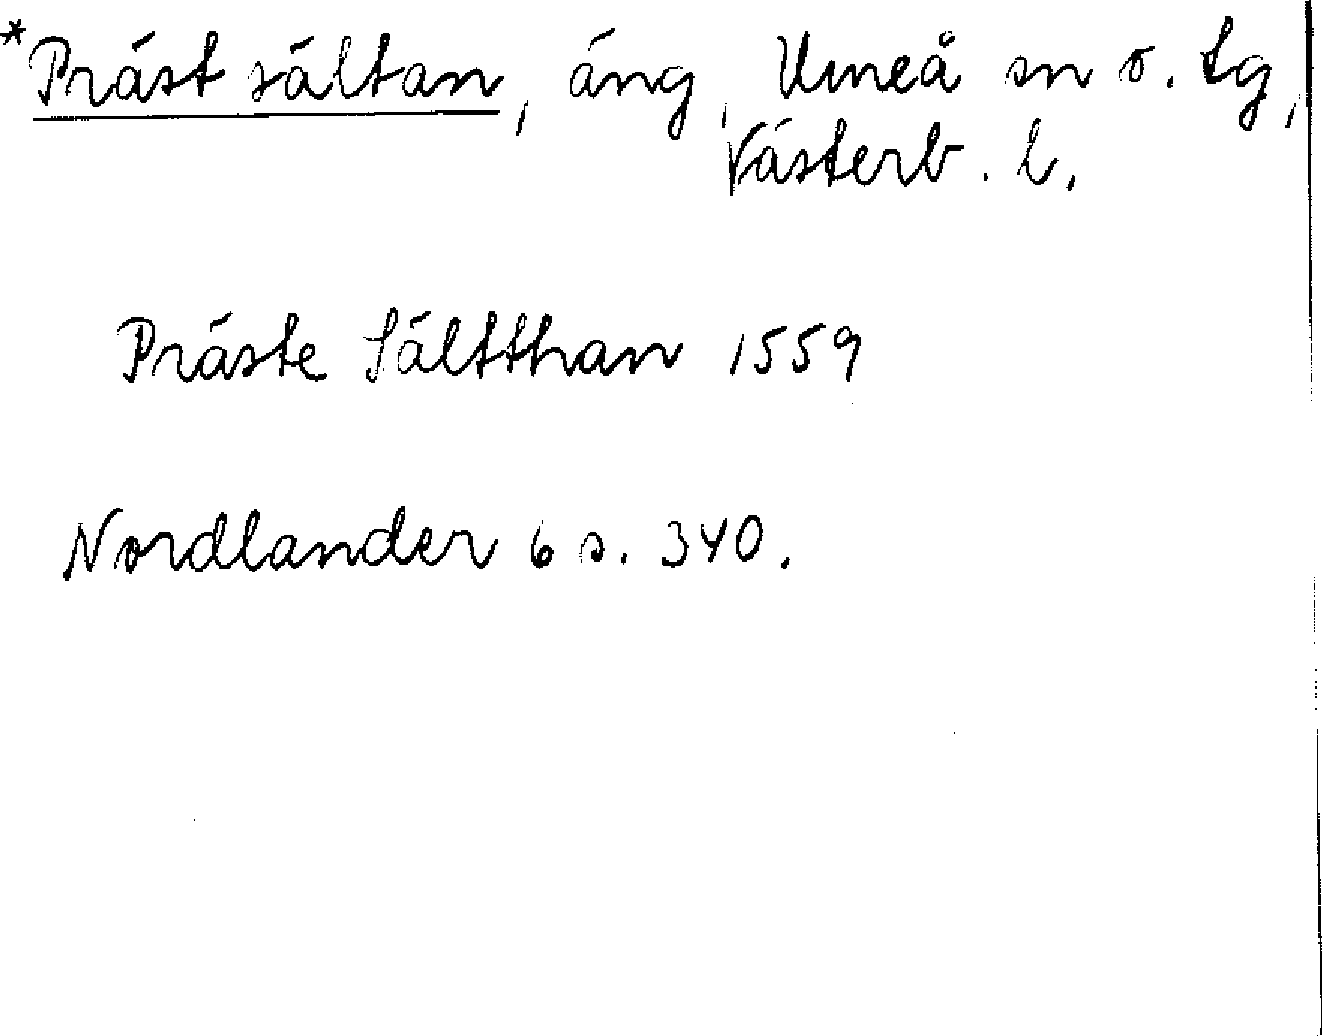 *Prästsältan, äng, Umeå sn o. tg,
Västerb. l.
Präste Sältthan 1559
Nordlander 6 s. 340.